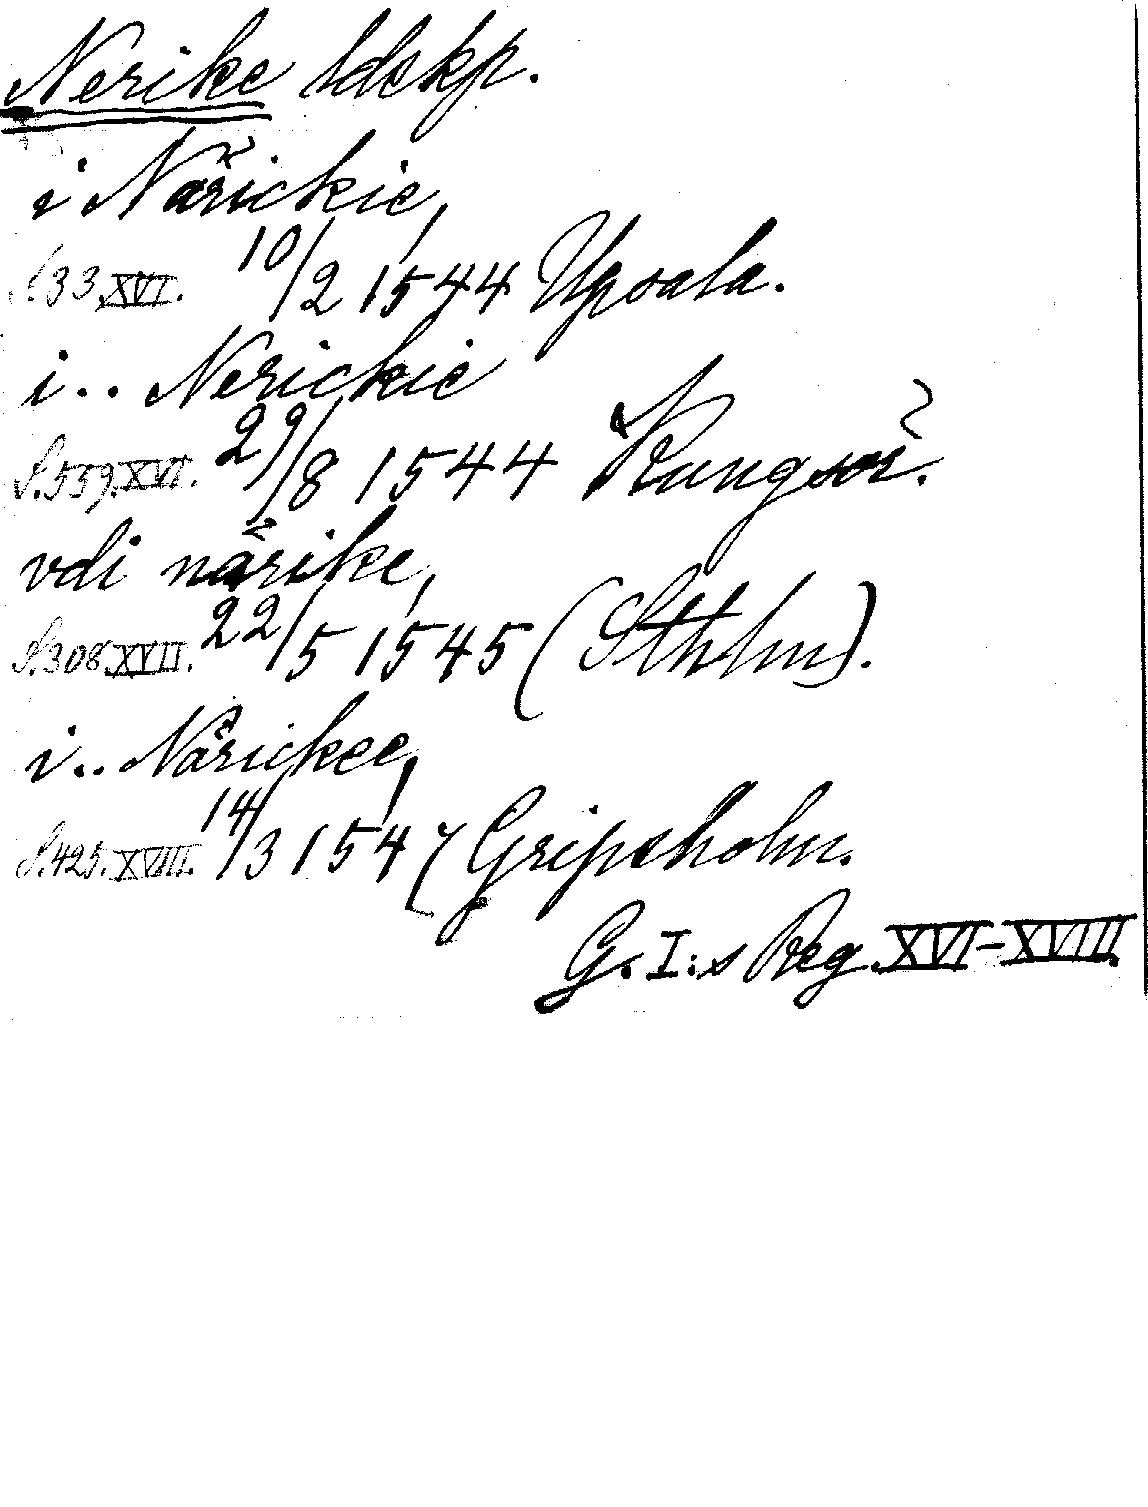 Nerike ldskp.
i Närickie,
S.33.XVI. 10/2 1544 Upsala.
i.. Nerickie
S.559.XVI. 29/8 1544 Kungsör.
vdi närike,
S.308.XVII. 22/5 1545 (Sthlm).
i.. Närickee,
S.425.XVIII. 14/3 1547 Gripsholm.
G.I:s Reg. XVI-XVIII.